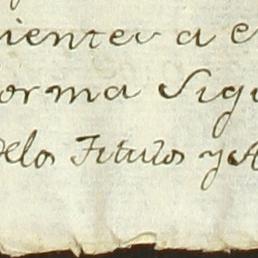 ientes a e
orma sigu
delos Titulos y A